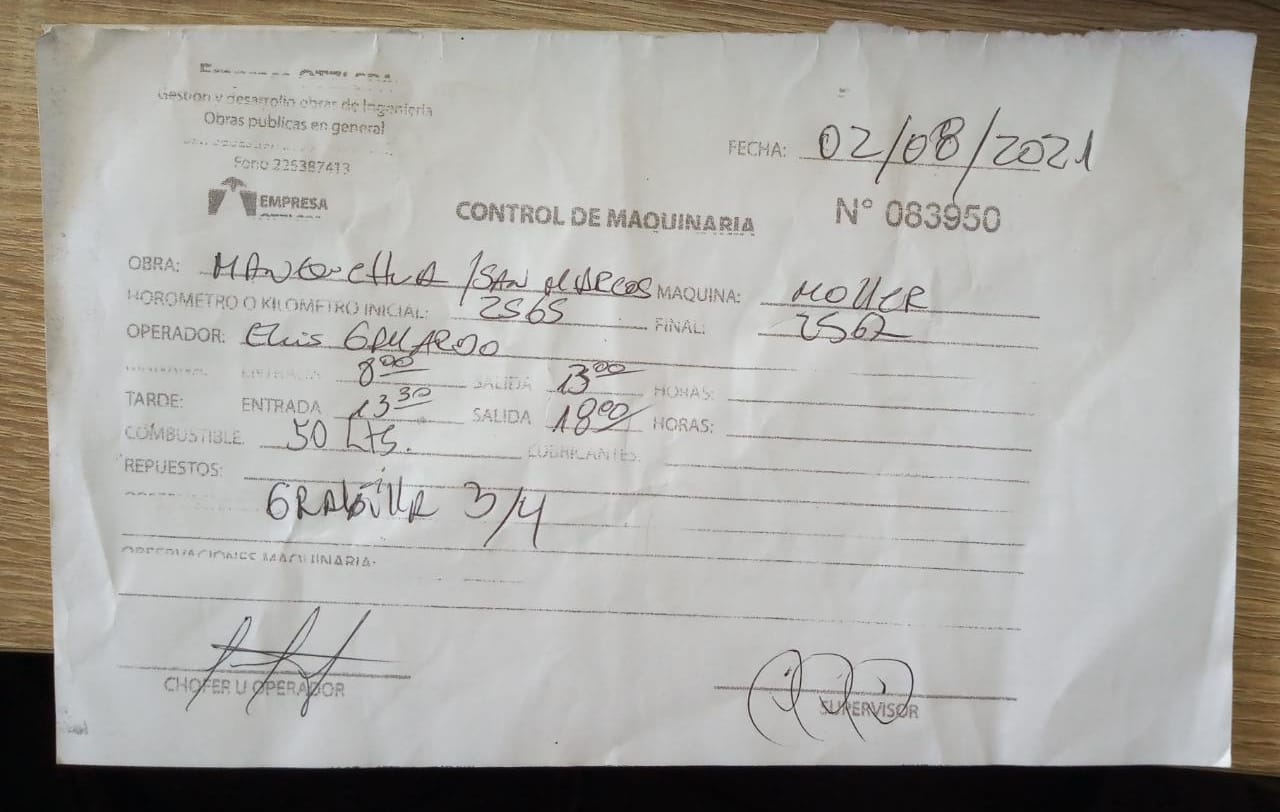 Gestion y desarrollo obras de Ingenieria
Obras publicas en general
Fono 225387413
EMPRESA
FECHA: 02/08/2021
CONTROL DE MAQUINARIA N° 083950
OBRA: / SAN MARCOS MAQUINA: MOLLER
HOROMETRO O KILOMETRO INICIAL: 2565 FINAL: 2562
OPERADOR: GALLARDO
ENTRADA 8:00 SALIDA 13:00 HORAS:
TARDE: ENTRADA 13:30 SALIDA 18:00 HORAS:
COMBUSTIBLE. 50 Lts. LUBRICANTES:
REPUESTOS:
GRAVILLA 3/4
OBSERVACIONES MAQUINARIA:
CHOFER U OPERADOR
SUPERVISOR